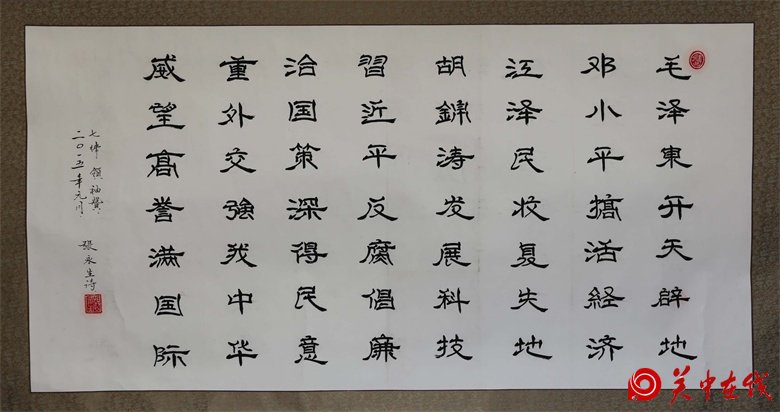 毛泽東开天辟地
邓小平搞活经济
江泽民收复失地
胡錦涛发展科技
習近平反腐倡廉
治国策深得民意
重外交强我中华
威望高誉满国际
七律 领袖赞
二〇一五年元月
張永生诗
关中在线